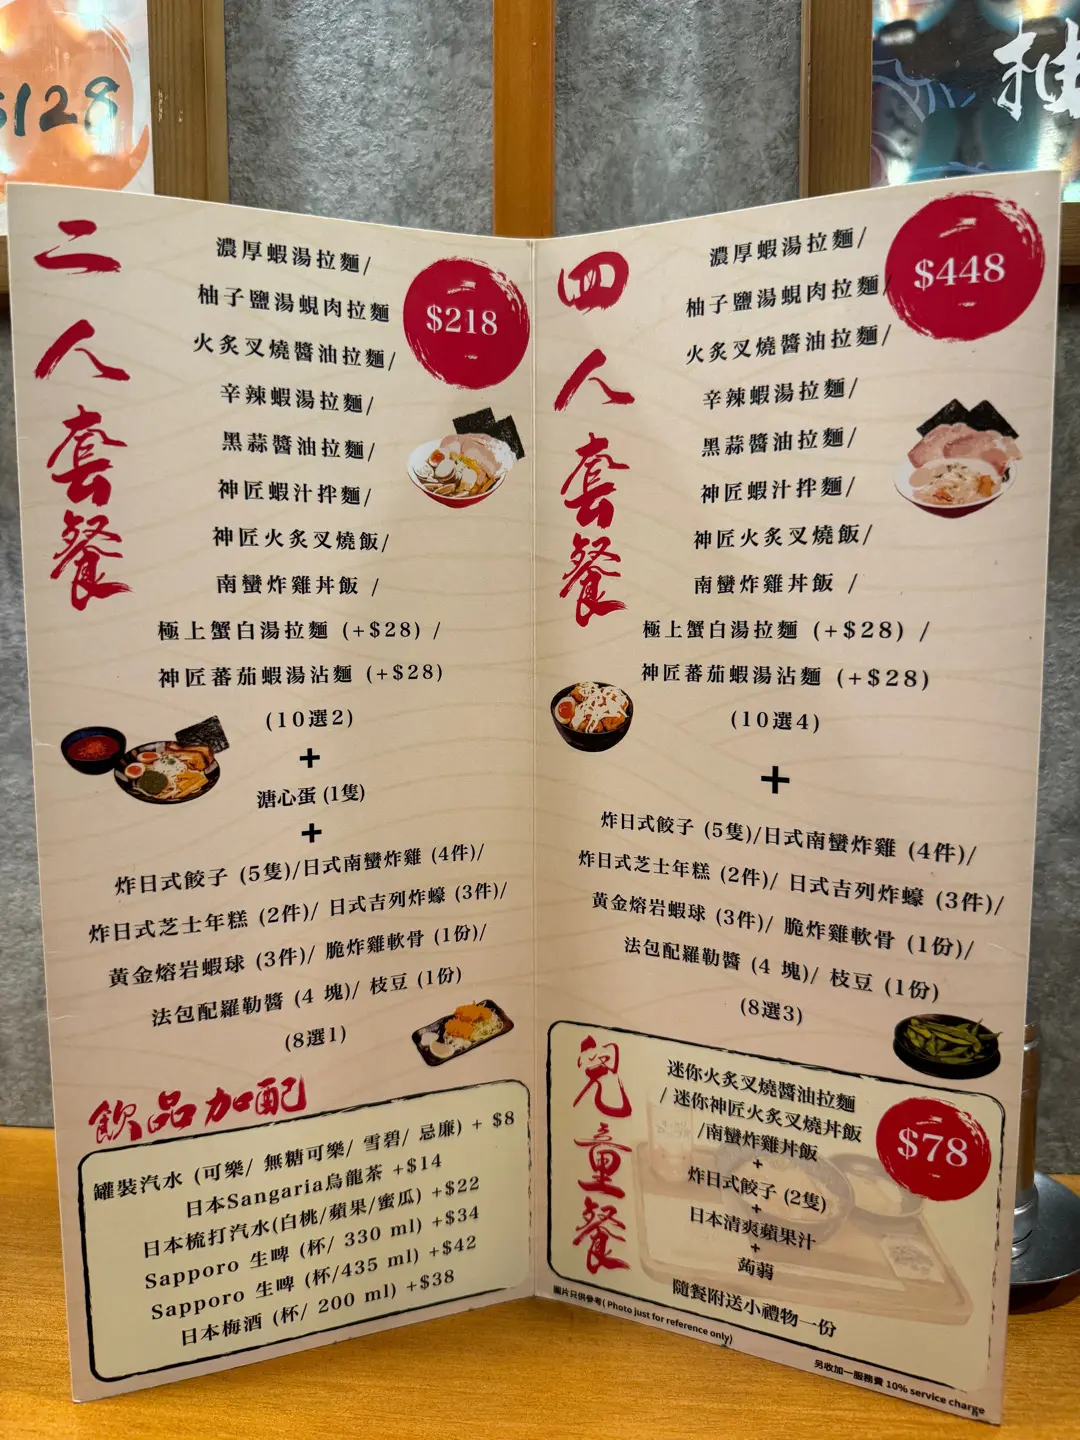 $128
柚
二人套餐
$218
濃厚蝦湯拉麵/
柚子鹽湯蜆肉拉麵
火炙叉燒醬油拉麵/
辛辣蝦湯拉麵/
黑蒜醬油拉麵/
神匠蝦汁拌麵/
神匠火炙叉燒飯/
南蠻炸雞丼飯 /
極上蟹白湯拉麵 (+$28) /
神匠蕃茄蝦湯沾麵 (+$28)
(10選2)
+
溏心蛋 (1隻)
+
炸日式餃子 (5隻)/日式南蠻炸雞 (4件)/
炸日式芝士年糕 (2件)/ 日式吉列炸蠔 (3件)/
黃金熔岩蝦球 (3件)/ 脆炸雞軟骨 (1份)/
法包配羅勒醬 (4 塊)/ 枝豆 (1份)
(8選1)
飲品加配
罐裝汽水 (可樂/ 無糖可樂/ 雪碧/ 忌廉) + $8
日本Sangaria烏龍茶 +$14
日本梳打汽水(白桃/蘋果/蜜瓜) +$22
Sapporo 生啤 (杯/ 330 ml) +$34
Sapporo 生啤 (杯/435 ml) +$42
日本梅酒 (杯/ 200 ml) +$38
四人套餐
$448
濃厚蝦湯拉麵/
柚子鹽湯蜆肉拉麵/
火炙叉燒醬油拉麵/
辛辣蝦湯拉麵/
黑蒜醬油拉麵/
神匠蝦汁拌麵/
神匠火炙叉燒飯/
南蠻炸雞丼飯 /
極上蟹白湯拉麵 (+$28) /
神匠蕃茄蝦湯沾麵 (+$28)
(10選4)
+
炸日式餃子 (5隻)/日式南蠻炸雞 (4件)/
炸日式芝士年糕 (2件)/ 日式吉列炸蠔 (3件)/
黃金熔岩蝦球 (3件)/ 脆炸雞軟骨 (1份)/
法包配羅勒醬 (4 塊)/ 枝豆 (1份)
(8選3)
兒童餐
$78
迷你火炙叉燒醬油拉麵
/ 迷你神匠火炙叉燒丼飯
/南蠻炸雞丼飯
+
炸日式餃子 (2隻)
+
日本清爽蘋果汁
+
蒟蒻
隨餐附送小禮物一份
圖片只供參考( Photo just for reference only)
另收加一服務費 10% service charge